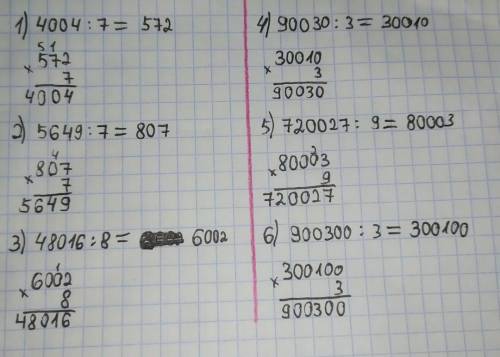 1) 4004 : 7 = 572
51
× 572
7
4004
2) 5649 : 7 = 807
4
× 807
7
5649
3) 48016 : 8 = 6002
1
× 6002
8
48016
4) 90030 : 3 = 30010
× 30010
3
90030
5) 720027 : 9 = 80003
2
× 80003
9
720027
6) 900300 : 3 = 300100
× 300100
3
900300